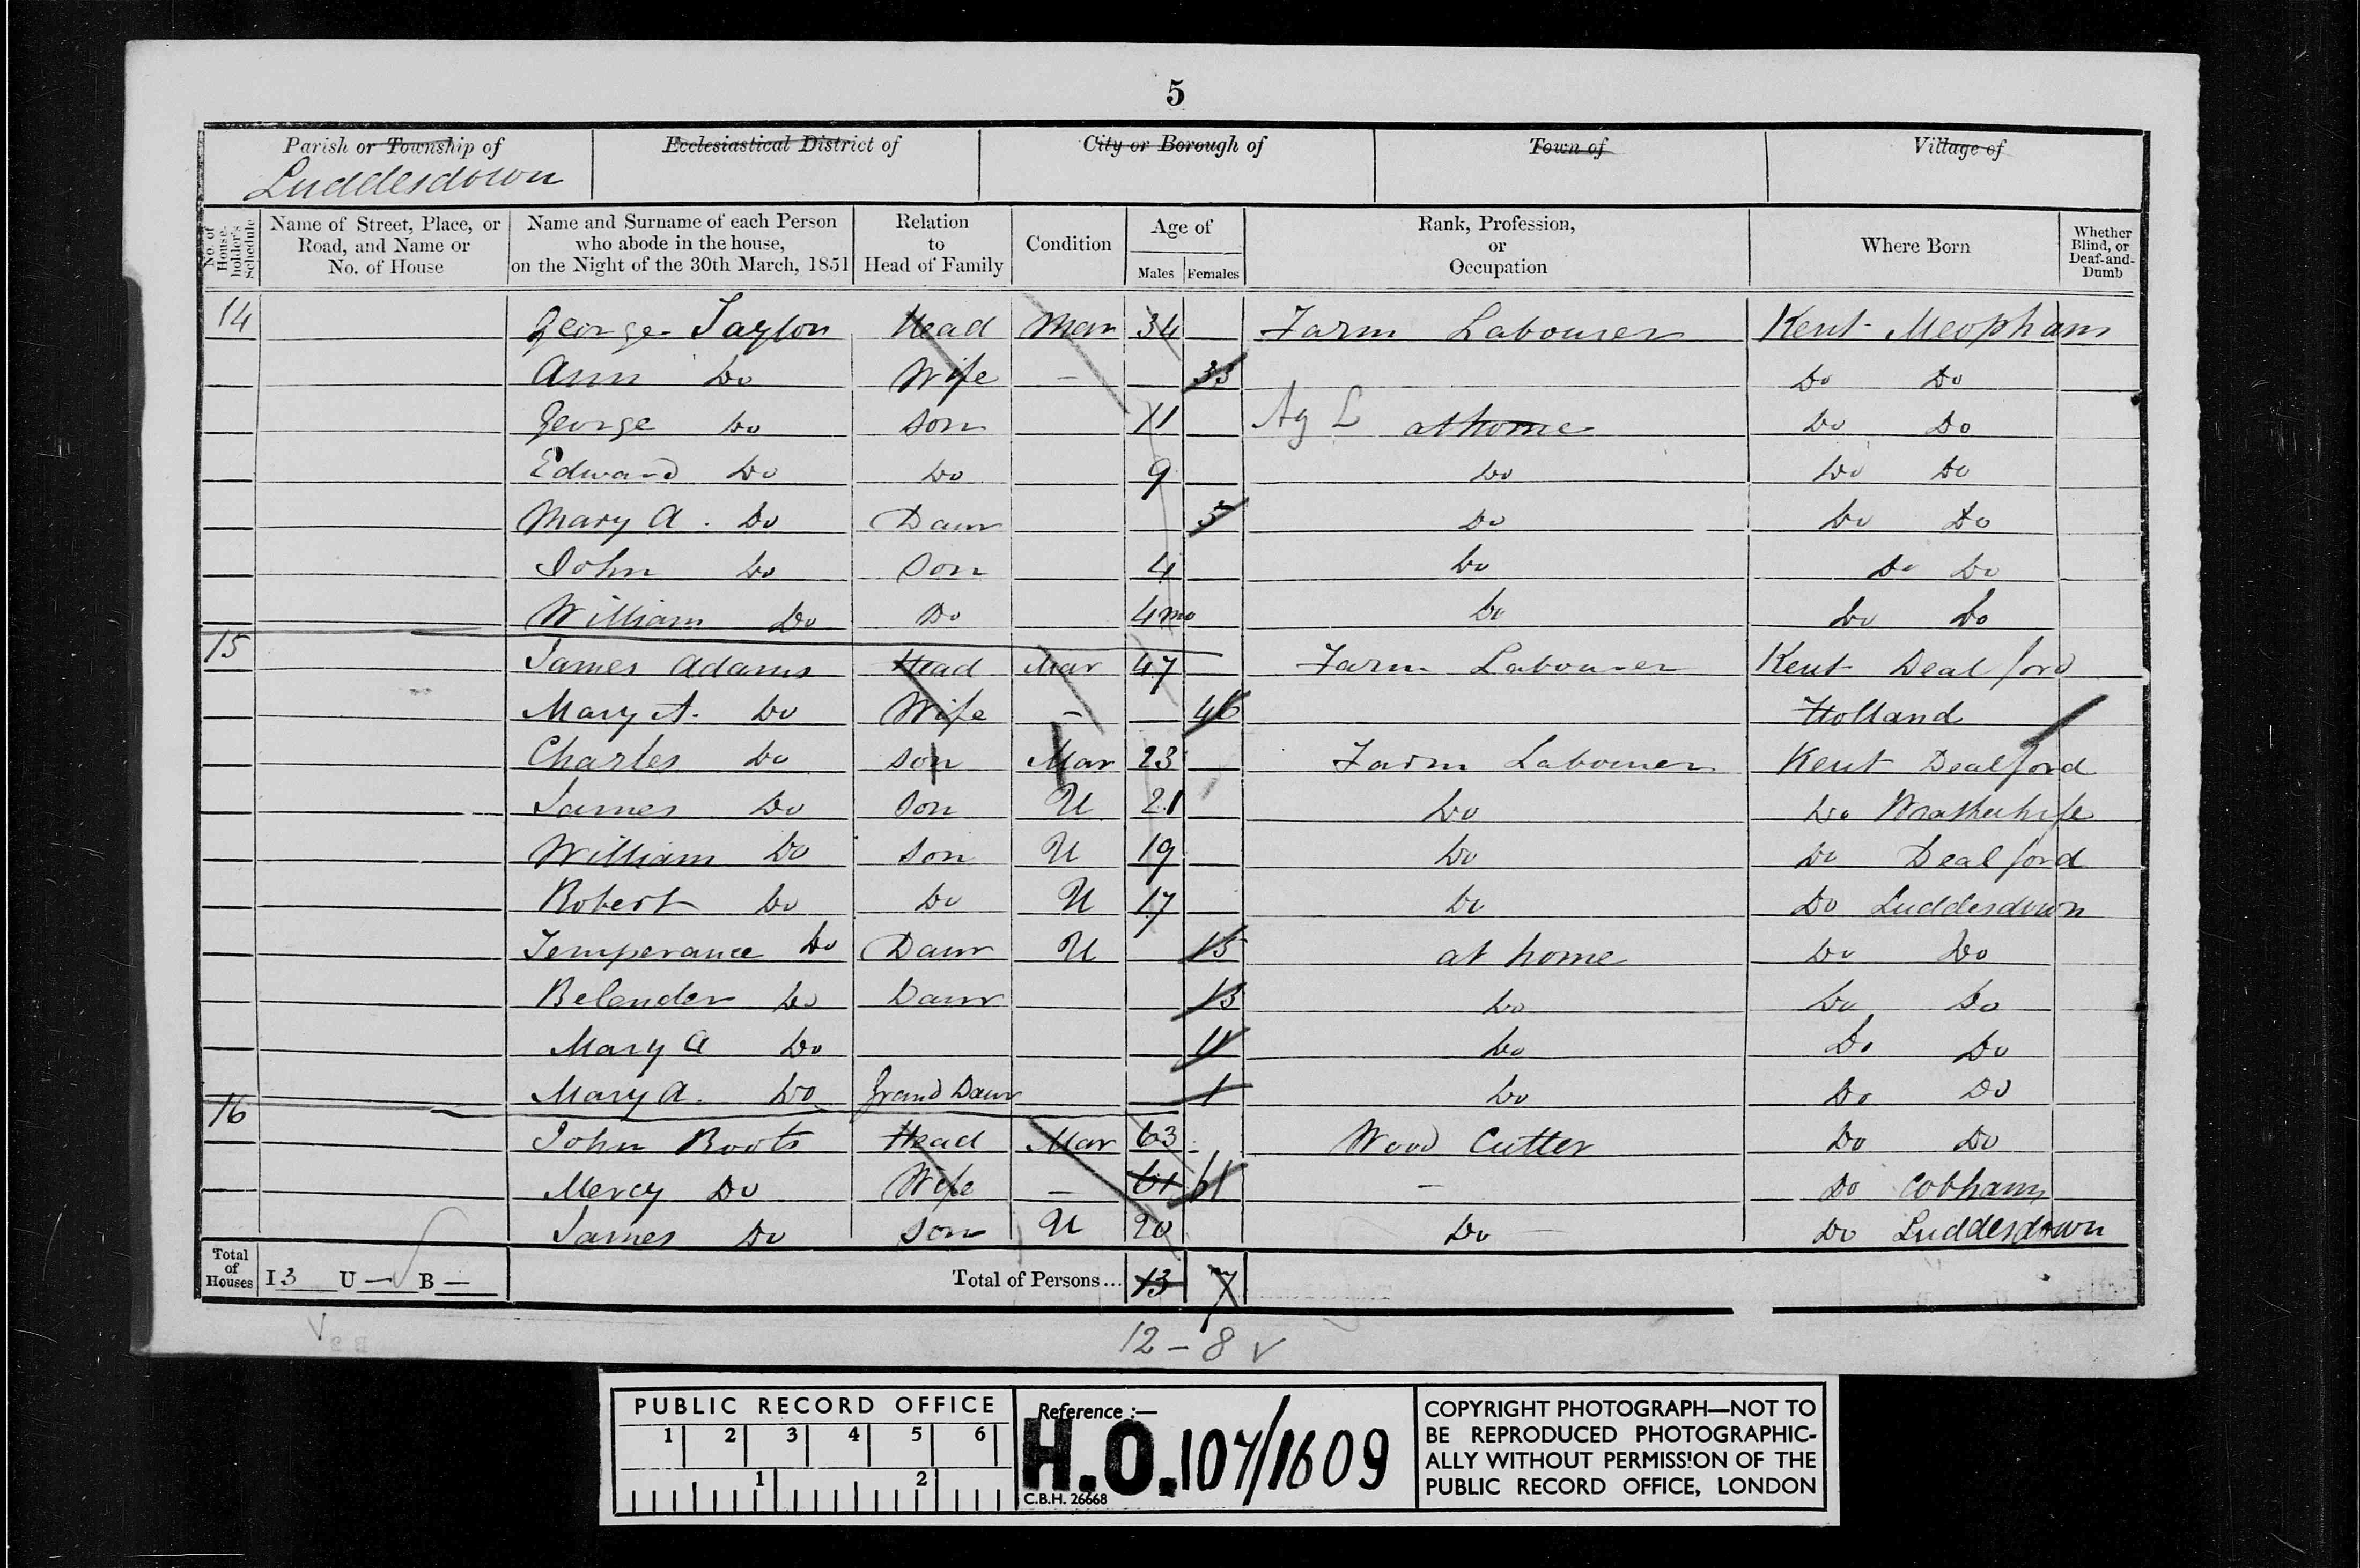 5
Parish or Township of Ecclesiastical District of City or Borough of Town of Village of
Luddesdown
No. of House-holder's Schedule Name of Street, Place, or Road, and Name or No. of House Name and Surname of each Person who abode in the house, on the Night of the 30th March, 1851 Relation to Head of Family Condition Age of Males Females Rank, Profession, or Occupation Where Born Whether Blind, or Deaf-and-Dumb
14 George Taylor Head Mar 34 Farm Labourer Kent Meopham
Ann Do Wife - 33 Do Do
George Do Son 11 Ag L at home Do Do
Edward Do Do 9 Do Do Do
Mary A. Do Daur 5 Do Do Do
John Do Son 4 Do Do Do
William Do Do 4mo Do Do Do
15 James Adams Head Mar 47 Farm Labourer Kent Dealford
Mary A. Do Wife - 46 Holland
Charles Do Son Mar 23 Farm Labourer Kent Dealford
James Do Son U 21 Do Do
William Do Son U 19 Do Do Dealford
Robert Do Do U 17 Do Do Luddesdown
Temperance Do Daur U 15 at home Do Do
Belender Do Daur 13 Do Do Do
Mary A Do 11 Do Do Do
Mary A. Do Grand Daur 1 Do Do Do
16 John Boots Head Mar 63 Wood Cutter Do Do
Mercy Do Wife - 61 61 - Do Cobham
James Do Son U 20 Do Do Luddesdown
Total of Houses I 3 U — B — Total of Persons... 13 7
12 - 8
PUBLIC RECORD OFFICE
1 2 3 4 5 6
1 2
Reference :—
H.O. 107/1609
C.B.H. 26668
COPYRIGHT PHOTOGRAPH—NOT TO
BE REPRODUCED PHOTOGRAPHIC-
ALLY WITHOUT PERMISSION OF THE
PUBLIC RECORD OFFICE, LONDON